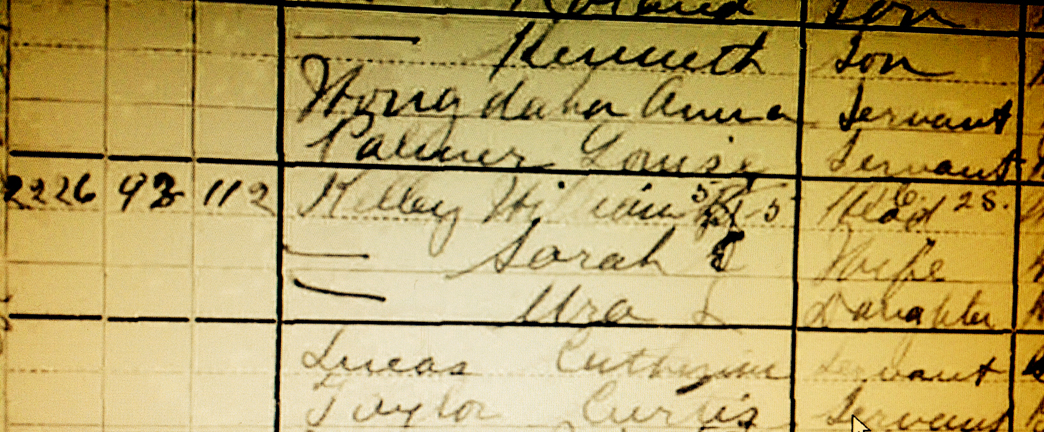 Roland Son
— Kenneth Son
Anna Servant
Palmer Louise Servant
2226 93 112 Kelley William Head 28.
— Sarah E Wife
— Daughter
Lucas Catherine Servant
Taylor Curtis Servant